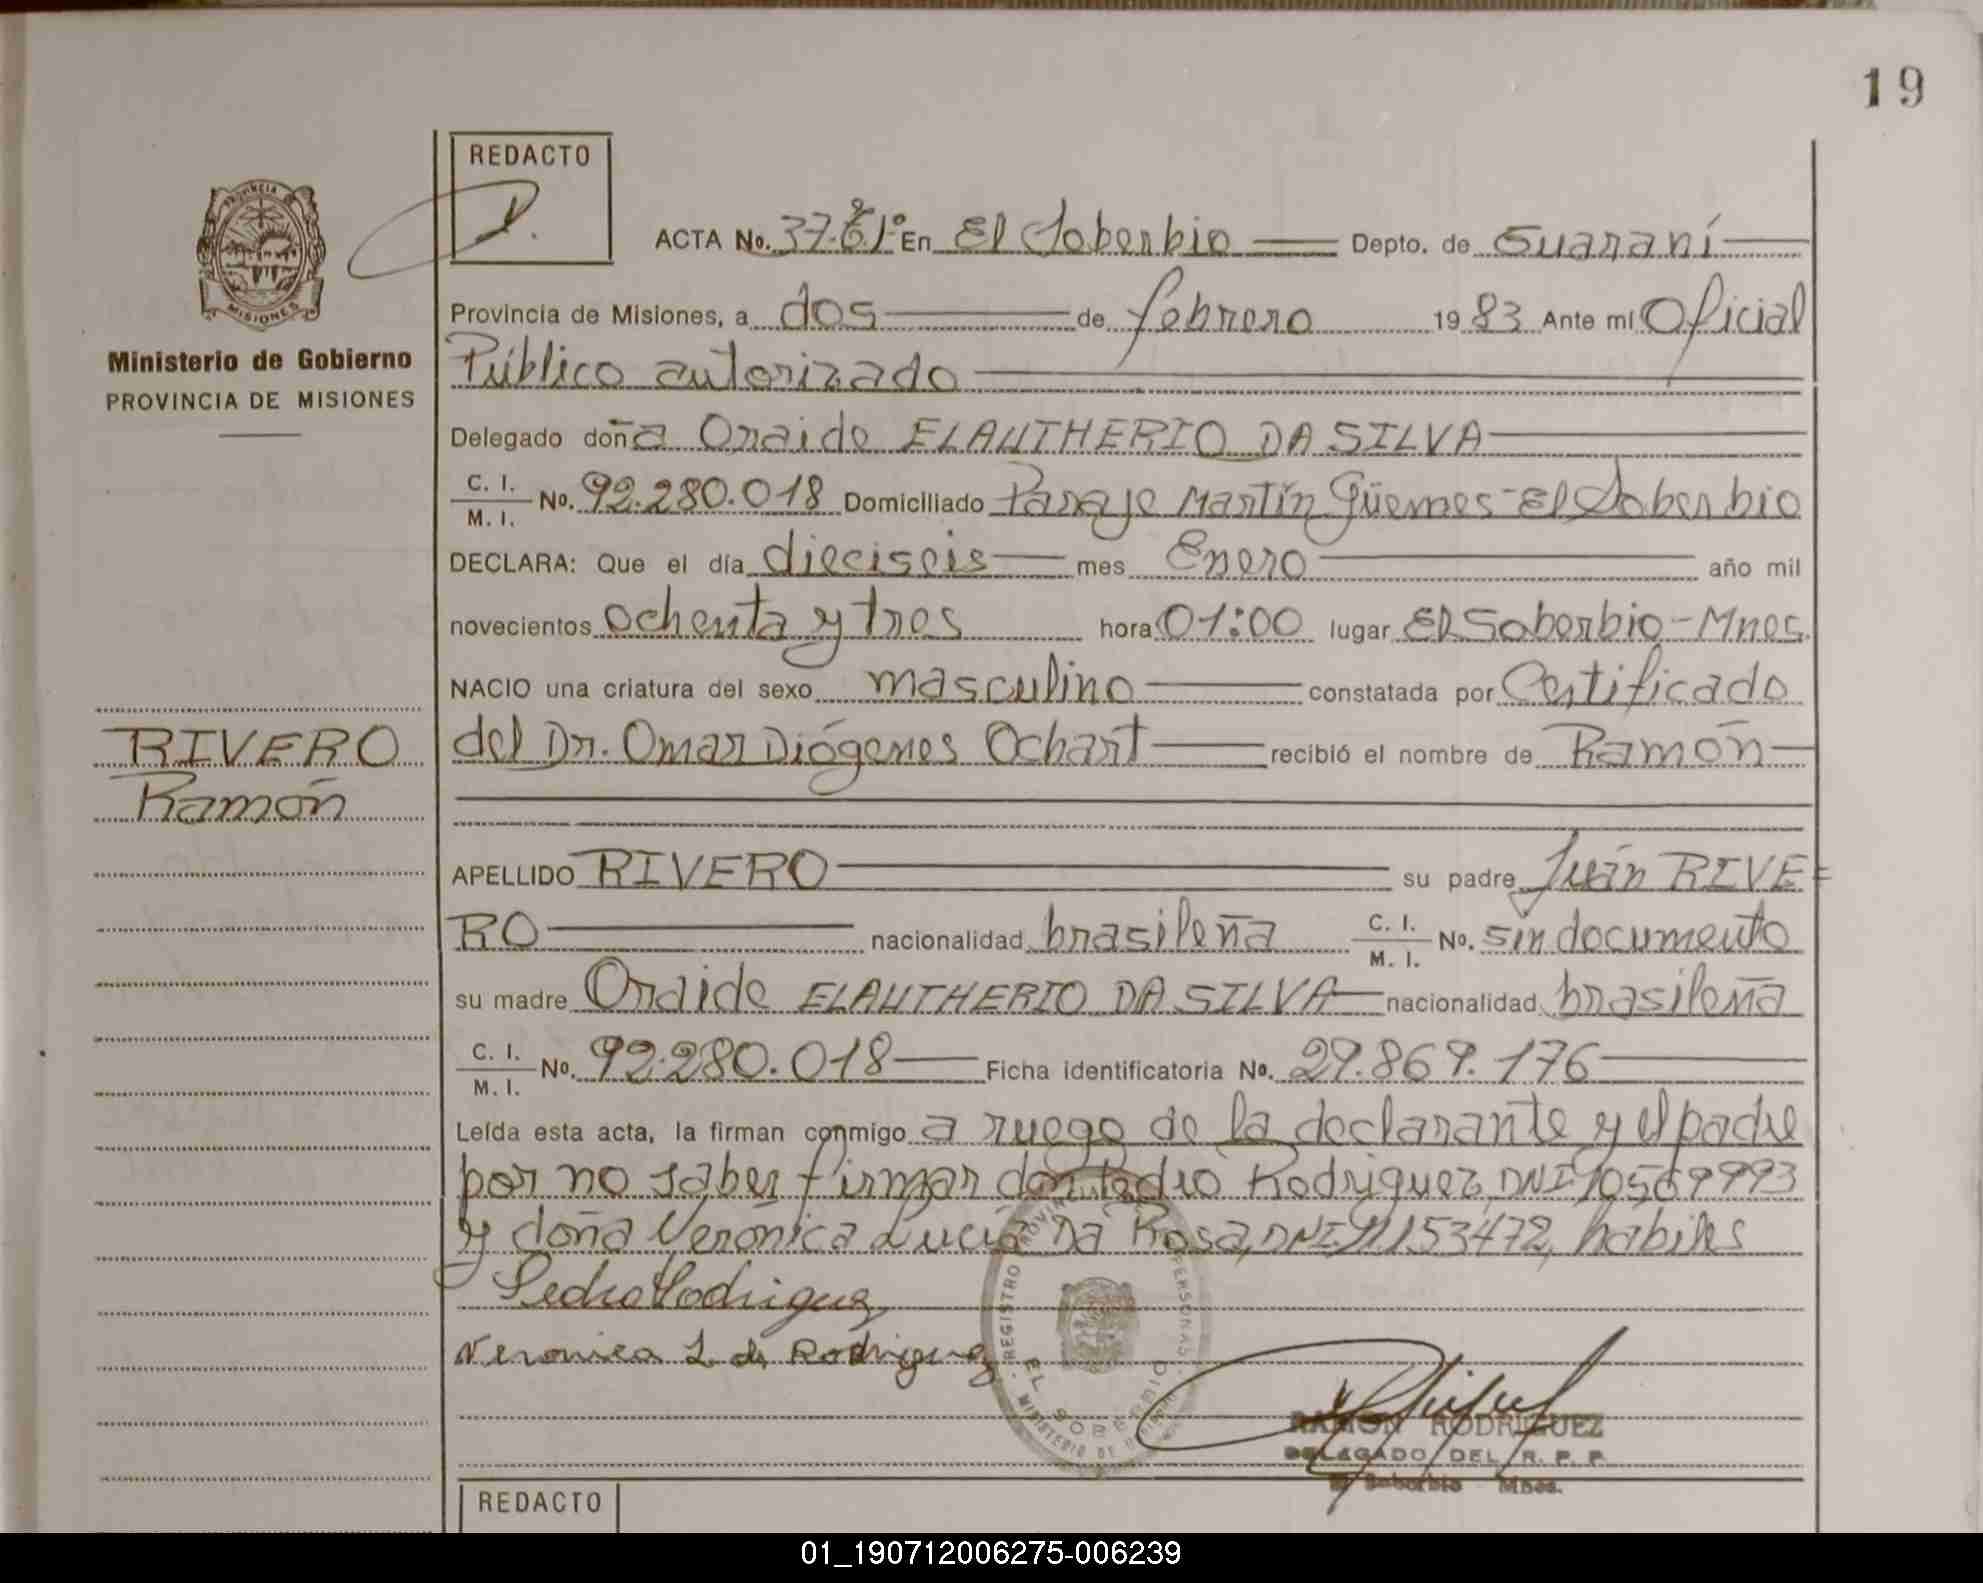 19
REDACTO
ACTA No. 37. En El Soberbio Depto. de Guaraní
Provincia de Misiones, a dos de febrero 1983 Ante mí Oficial
Público autorizado
Ministerio de Gobierno
PROVINCIA DE MISIONES
Delegado doña Oraide ELAUTHERIO DA SILVA
C. I.
M. I. No. 92.280.018 Domiciliado Paraje Martín Güemes - El Soberbio
DECLARA: Que el día dieciseis mes Enero año mil
novecientos ochenta y tres hora 01:00 lugar El Soberbio - Mnes.
NACIO una criatura del sexo masculino constatada por Certificado
RIVERO
Ramón
del Dr. Omar Diógenes Ochart recibió el nombre de Ramón
APELLIDO RIVERO su padre Juan RIVE=
RO nacionalidad brasileña C. I. M. I. No. sin documento
su madre Oraide ELAUTHERIO DA SILVA nacionalidad brasileña
C. I.
M. I. No. 92.280.018 Ficha identificatoria No. 29.869.176
Leída esta acta, la firman conmigo a ruego de la declarante y el padre
por no saber firmar don Pedro Rodriguez, DNI 10569993
y doña Verónica Lucía Da Rosa, DNI 11153472, habiles
Pedro Rodriguez
Veronica L. de Rodriguez
REGISTRO PERSONAS
EL SOBERBIO
MINISTERIO DE
RAMON RODRIGUEZ
DELEGADO DEL R. P. P.
El Soberbio Mnes.
REDACTO
01_190712006275-006239